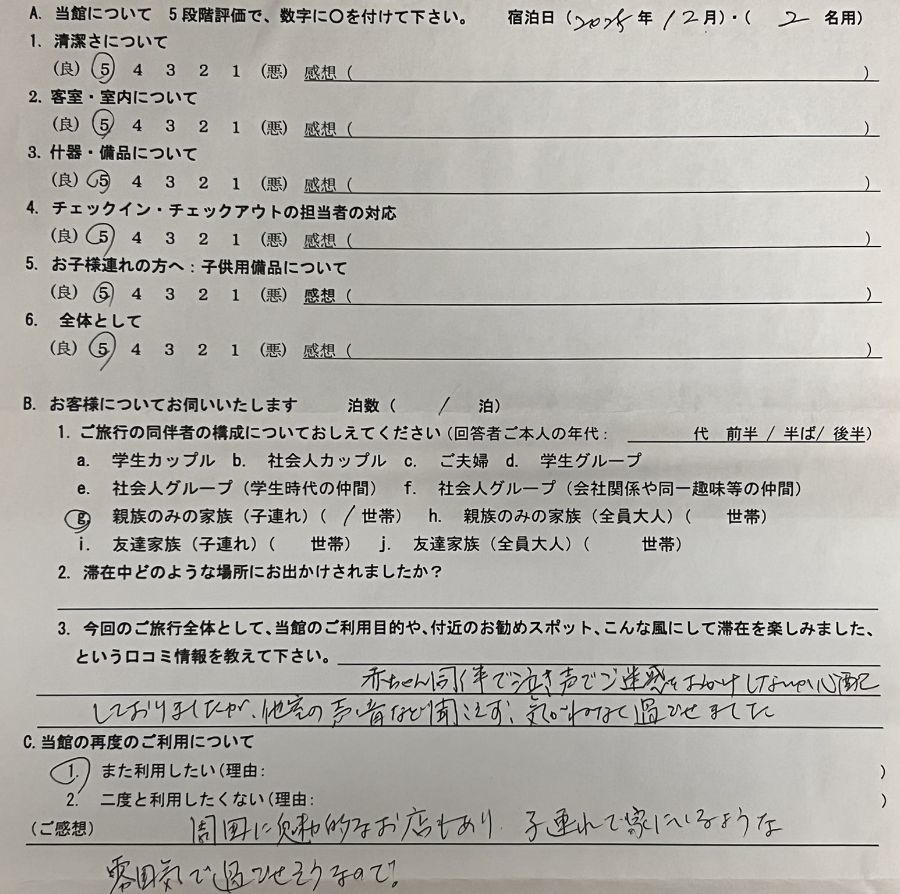 A. 当館について 5段階評価で、数字に〇を付けて下さい。 宿泊日（2025年 12月）・（ 2 名用）
1. 清潔さについて
（良） 5 4 3 2 1 （悪） 感想（ ）
2. 客室・室内について
（良） 5 4 3 2 1 （悪） 感想（ ）
3. 什器・備品について
（良） 5 4 3 2 1 （悪） 感想（ ）
4. チェックイン・チェックアウトの担当者の対応
（良） 5 4 3 2 1 （悪） 感想（ ）
5. お子様連れの方へ：子供用備品について
（良） 5 4 3 2 1 （悪） 感想（ ）
6. 全体として
（良） 5 4 3 2 1 （悪） 感想（ ）
B. お客様についてお伺いいたします 泊数（ 1 泊）
1. ご旅行の同伴者の構成についておしえてください（回答者ご本人の年代： 代 前半 / 半ば/ 後半）
a. 学生カップル b. 社会人カップル c. ご夫婦 d. 学生グループ
e. 社会人グループ（学生時代の仲間） f. 社会人グループ（会社関係や同一趣味等の仲間）
g. 親族のみの家族（子連れ）（ 1 世帯） h. 親族のみの家族（全員大人）（ 世帯）
i. 友達家族（子連れ）（ 世帯） j. 友達家族（全員大人）（ 世帯）
2. 滞在中どのような場所にお出かけされましたか？
3. 今回のご旅行全体として、当館のご利用目的や、付近のお勧めスポット、こんな風にして滞在を楽しみました、
という口コミ情報を教えて下さい。
赤ちゃん同伴で泣き声でご迷惑をおかけしないか心配
しておりましたが、他室の声や音など聞こえず、気がねなく過ごせました
C. 当館の再度のご利用について
1. また利用したい（理由： ）
2. 二度と利用したくない（理由： ）
（ご感想） 周囲に魅力的なお店もあり、子連れで家にいるような
雰囲気で過ごせそうなので！